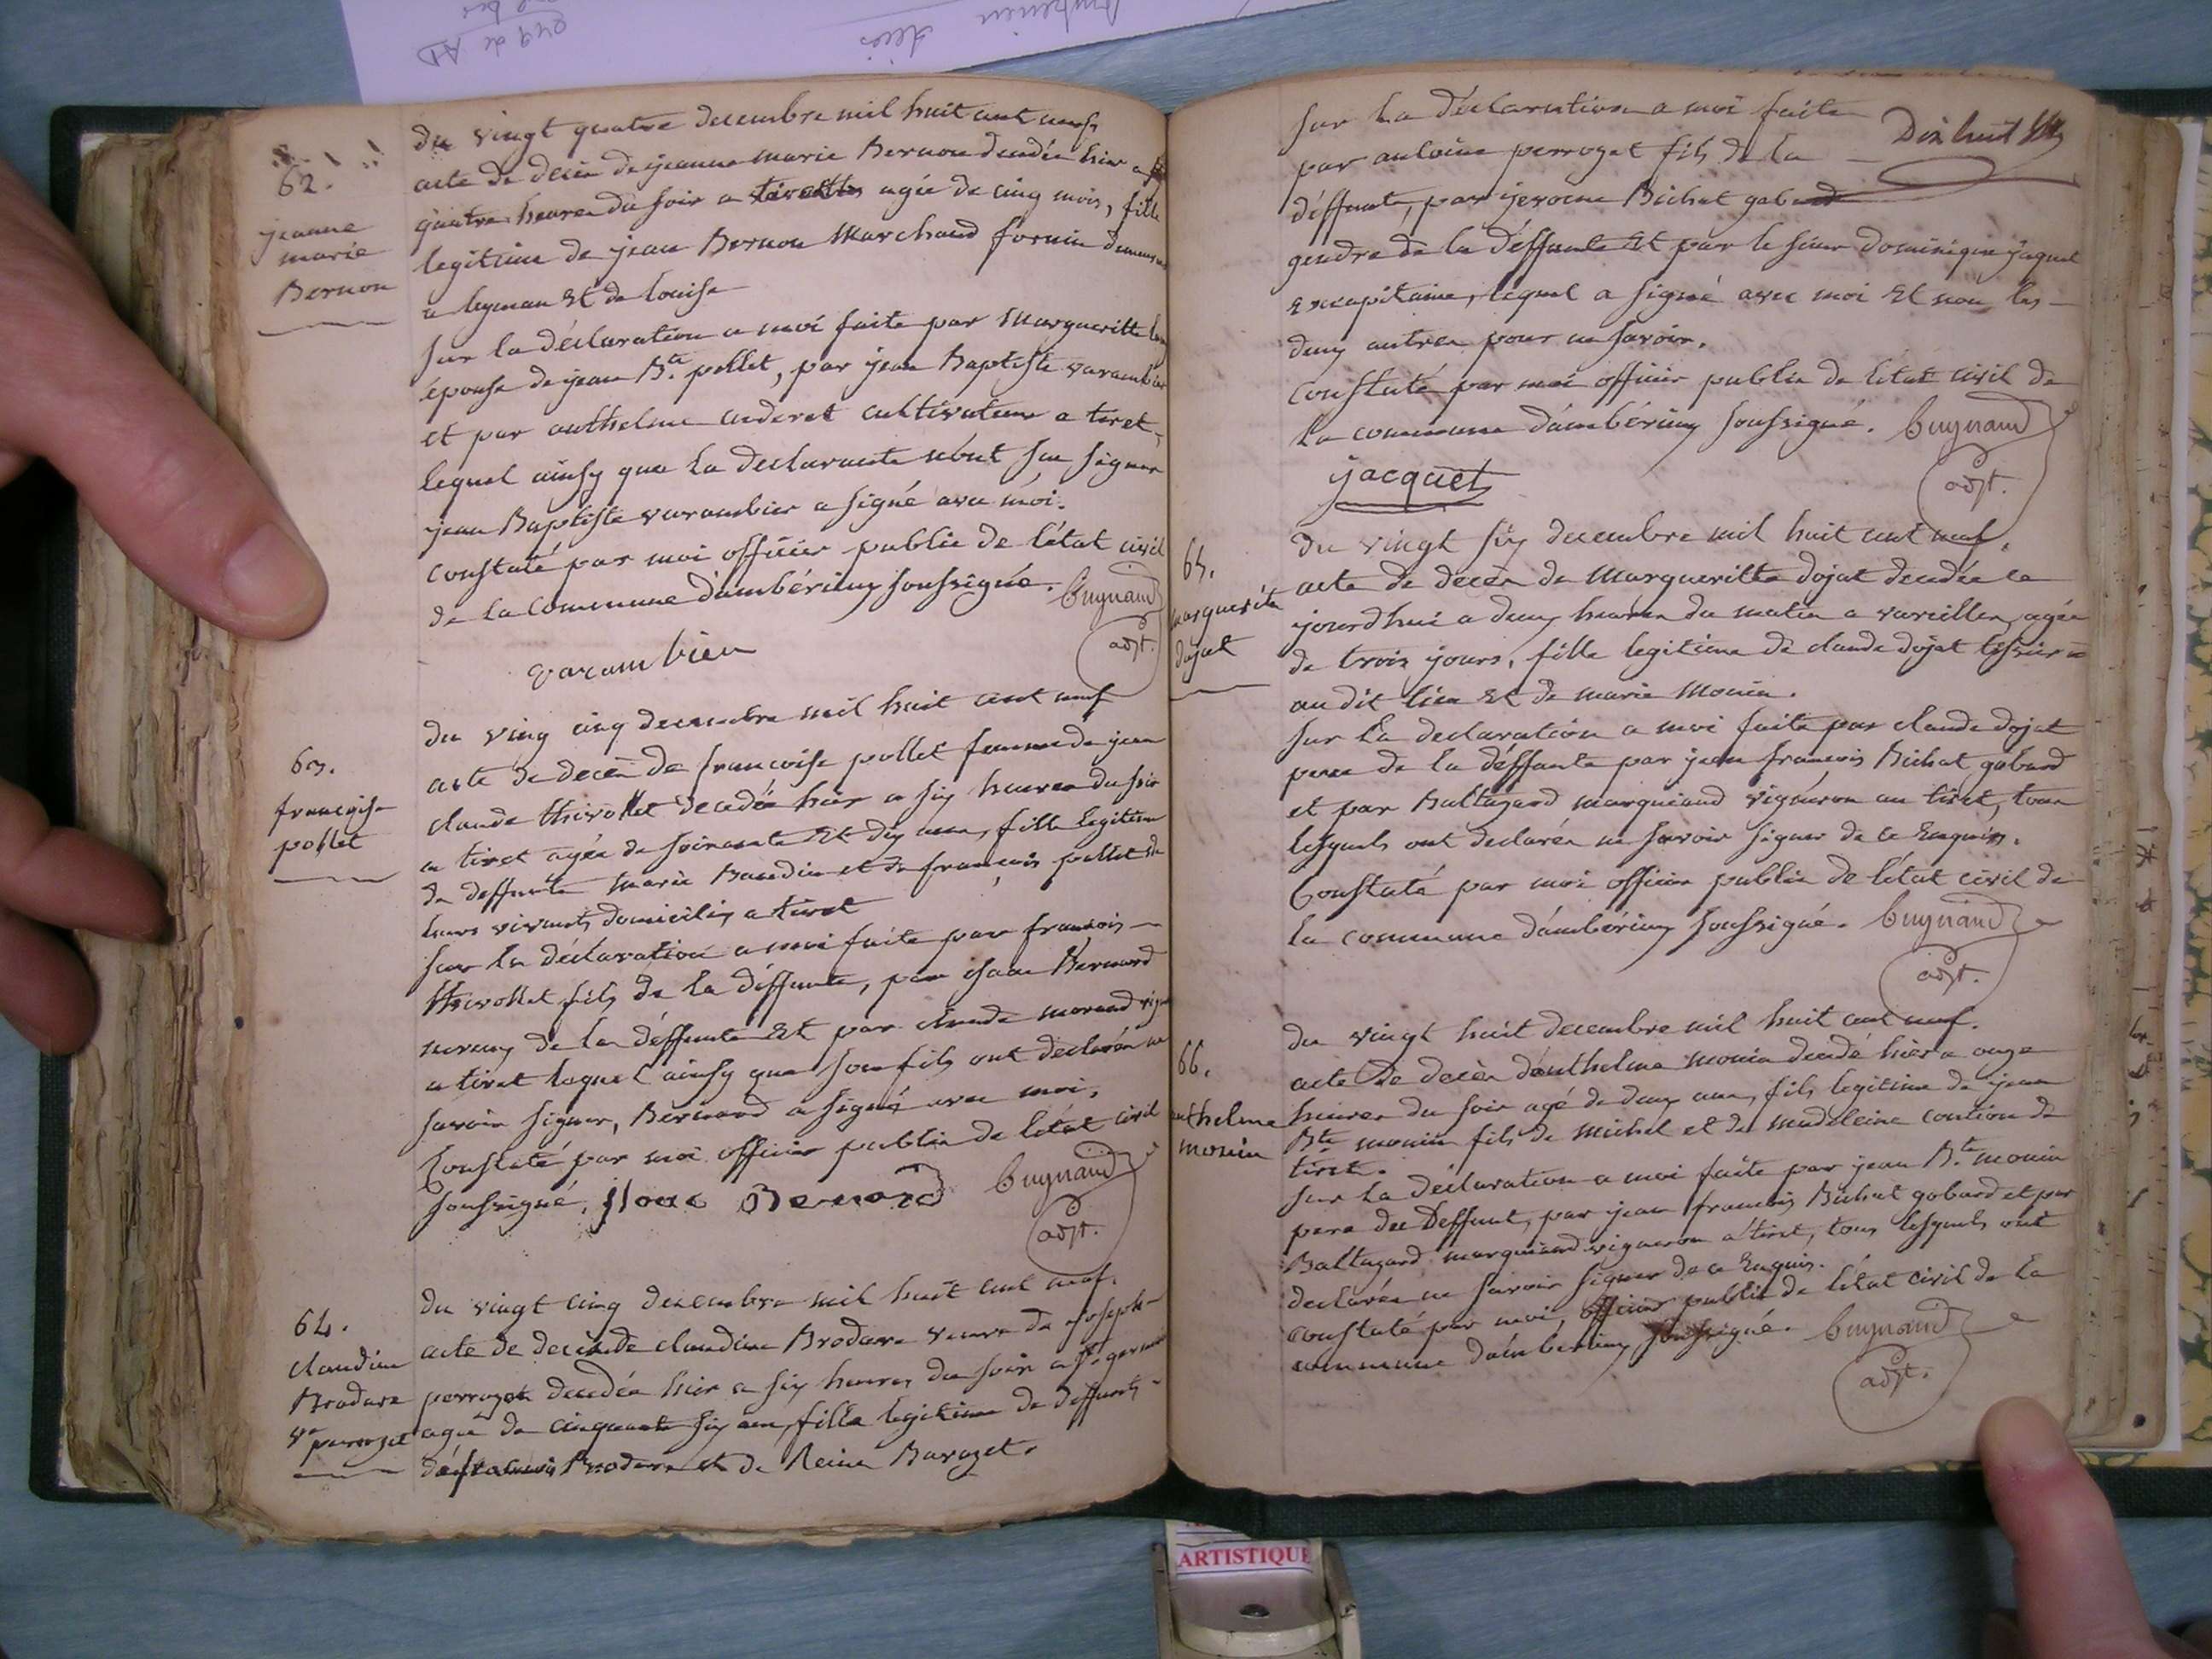 62.
jeanne
marie
Bernon
du vingt quatre decembre mil huit cent neuf
acte de decès de jeanne marie Bernon decedée hier a
quatre heures du soir a agée de cinq mois, fille
legitime de jean Bernon Marchand forain
a leyman Et de louise
sur la déclaration a moi faite par Margueritte
épouse de jean Bte pollet, par jean Baptiste varambier
et par anthelme anderet cultivateur a tiret,
lequel ainsy que la declarante n'ont su signer
jean Baptiste varambier a signé avec moi.
constaté par moi officier public de l'état civil
de la commune d'ambérieux soussigné. Cuynaud
adjt.
varambier
63.
françoise
pollet
du ving cinq decembre mil huit cent neuf
acte de decès de francoise pollet femme de jean
claude thivollet decedée hier a six heures du soir
a tiret agée de soixante Et dix ans, fille legitime
de deffunte Marie Baudin et de françois pollet de
leurs vivants domiciliés a tiret
sur la déclaration a moi faite par francois
thivollet fils de la déffunte, par isaac Bernard
neveux de la déffunte Et par claude morand
a tiret lequel ainsy que son fils ont declarés ne
savoir signer, Bernard a signé avec moi.
Constaté par moi officier public de l'état civil
soussigné. Isaac Bernard Cuynaud
adjt.
64.
claudine
Brodare
Ve perrozet
du vingt cinq decembre mil huit cent neuf.
acte de decès de claudine Brodare veuve de joseph
perrozet decedée hier a six heures du soir a St germain
agée de cinquante six ans, fille legitime de deffunts
de francois Brodare et de Reine Barozet.
Dix huit
sur la déclaration a moi faite
par antoine perrozet fils de la
déffunte, par jerome Bichat gobard
gendre de la déffunte Et par le sieur dominique jaquet
Excapitaine, lequel a signé avec moi Et non les
deux autres pour ne savoir.
Constaté par moi officier public de l'état civil de
la commune d'ambérieux soussigné. Cuynaud
adjt.
jacquet
65.
marguerite
dojat
du vingt six decembre mil huit cent neuf.
acte de decès de Margueritte dojat decedée ce
jourd'hui a deux heures du matin a vareilles, agée
de trois jours, fille legitime de claude dojat tissier
au dit lieu Et de marie Monin.
sur la declaration a moi faite par claude dojat
pere de la déffunte par jean francois Bichat gobard
et par Baltazard marguiand vigneron au tiret, tous
lesquels ont declarés ne savoir signer de ce Enquis.
Constaté par moi officier public de l'état civil de
la commune d'ambérieux soussigné. Cuynaud
adjt.
66.
anthelme
monin
du vingt huit decembre mil huit cent neuf.
acte de decès d'anthelme monin decedé hier a onze
heures du soir agé de deux ans, fils legitime de jean
Bte monin fils de michel et de madeleine coution de
tiret.
sur la déclaration a moi faite par jean Bte monin
pere du Deffunt, par jean francois Bichat gobard et par
Baltazard marguiand vigneron a tiret, tous lesquels ont
declarés ne savoir signer de ce Enquis.
constaté par moi, officier public de l'état civil de la
commune d'amberieux soussigné. Cuynaud
adjt.
ARTISTIQUE